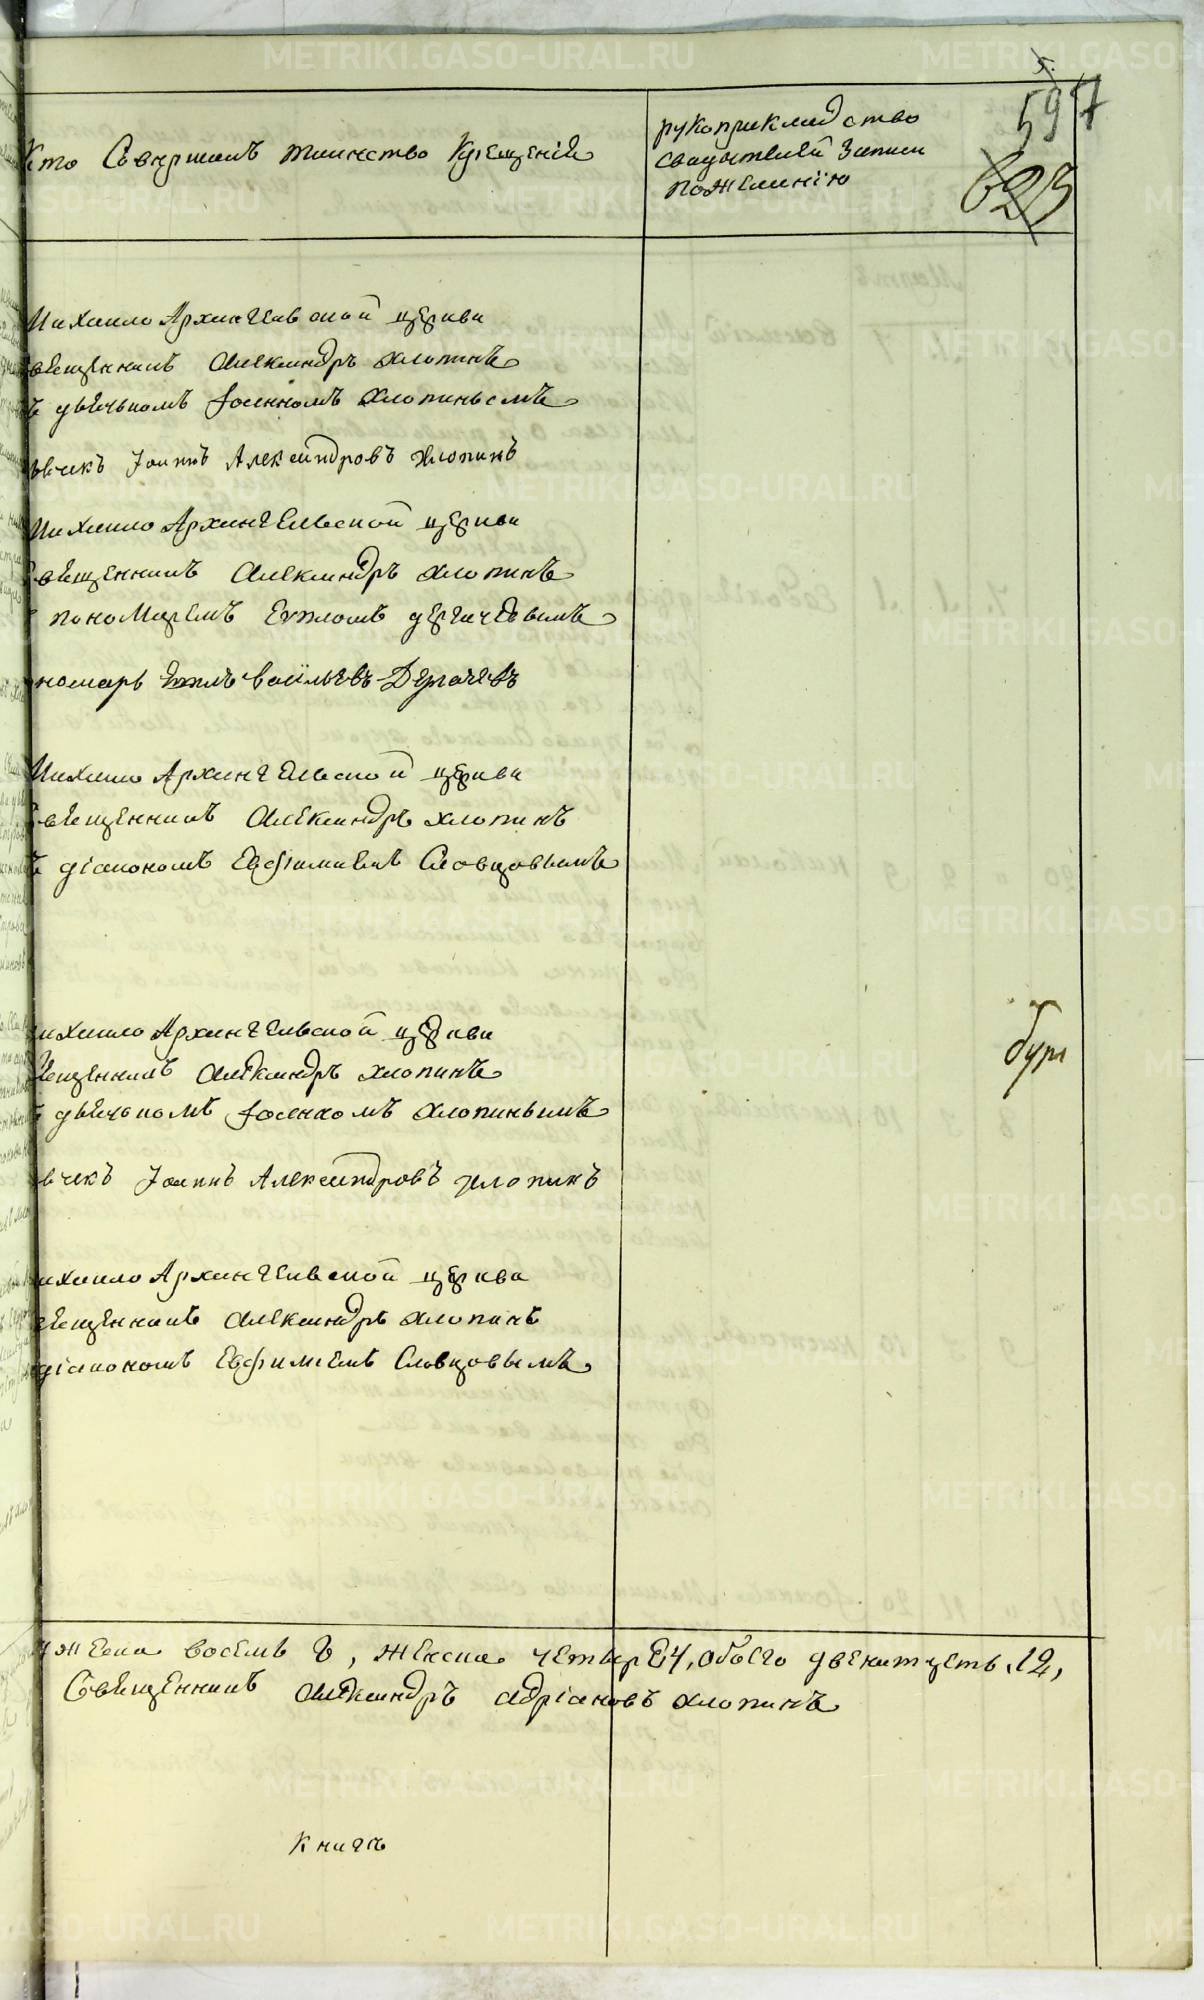 Кто Совершалъ таинство Крещенія
рукоприкладство
свидѣтелей записи
по желанію
597
623
Михаило Архангельской церкви
священникъ Александръ Хлопинъ
съ дьячькомъ Іоанномъ Хлопинымъ
дьячекъ Іоаннъ Александровъ Хлопинъ
Михаило Архангельской церкви
Священникъ Александръ Хлопинъ
пономаремъ Евпломъ дергачевымъ
пономарь Евплъ Васильевъ Дергачевъ
Михаило Архангельской церкви
Священникъ Александръ Хлопинъ
съ діакономъ Евфиміемъ Словцовымъ
Михаило Архангельской церкви
Священникъ Александръ Хлопинъ
съ дьячькомъ Іоанномъ Хлопинымъ
дьячекъ Іоаннъ Александровъ Хлопинъ
Михаило Архангельской церкви
священникъ Александръ Хлопинъ
діакономъ Евфиміемъ Словцовымъ
мужеска восемь 8, женска четыре 4, обоего двенатцеть 12,
Священникъ Александръ Адріановъ Хлопинъ
Книгъ
METRIKI.GASO-URAL.RU